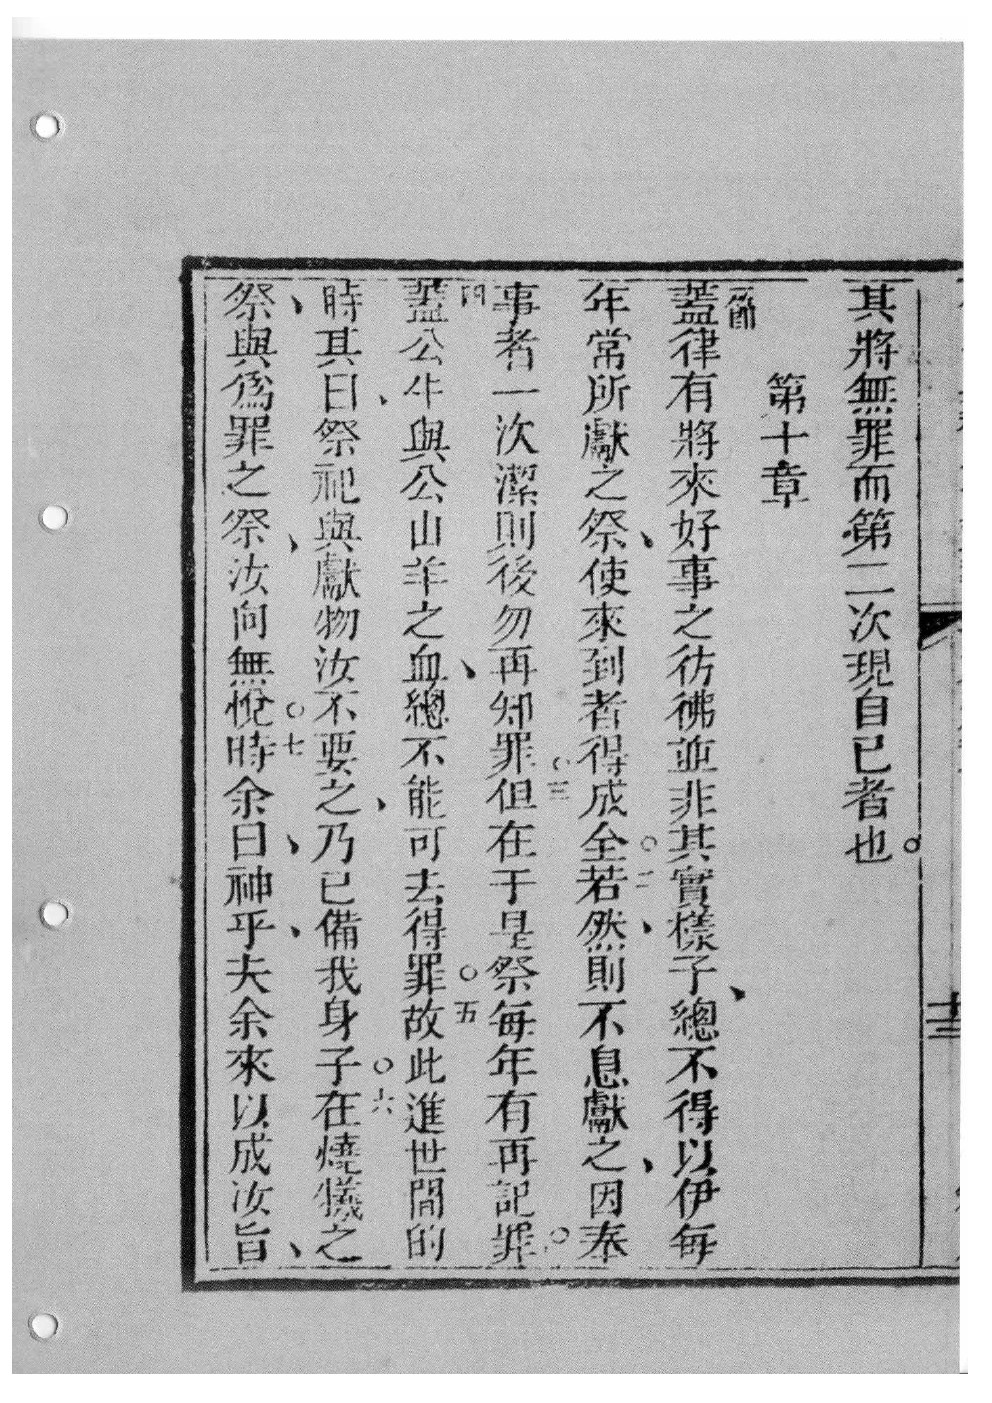 其將無罪而第二次現自已者也。
第十章
一節蓋律有將來好事之彷彿並非其實樣子、總不得以伊每
年常所獻之祭、使來到者得成全。二若然、則不息獻之、因奉
事者一次潔則後勿再知罪。三但在于是祭每年有再記罪。
四蓋公牛、與公山羊之血、總不能可去得罪。五故此進世間的
時其曰祭祀與獻物汝不要之、乃已備我身子。六在燒犧之
祭、與為罪之祭、汝向無悅。七時余曰、神乎、夫余來以成汝旨、